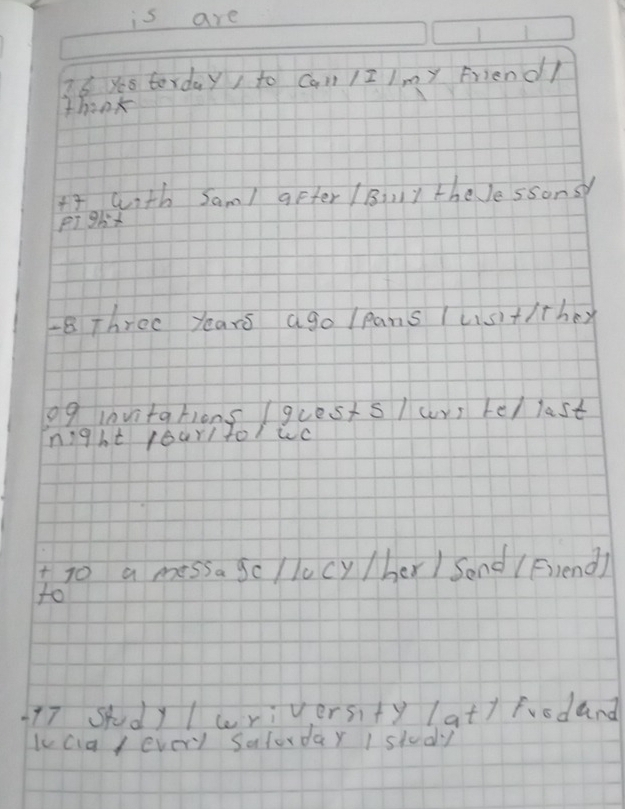 is are
?6 yesterday / to call / I / my Friend /
think
+7 with Sam / after / Bill / the lessons /
Fight
-8 Three years ago / Paris / visit / they
?9 invitations / guests / write / last
night / our / to / we
+ 10 a message / lucy / her / Send / Friend /
to
-11 Study / university / at / Fred and
lucia / every Saturday / study